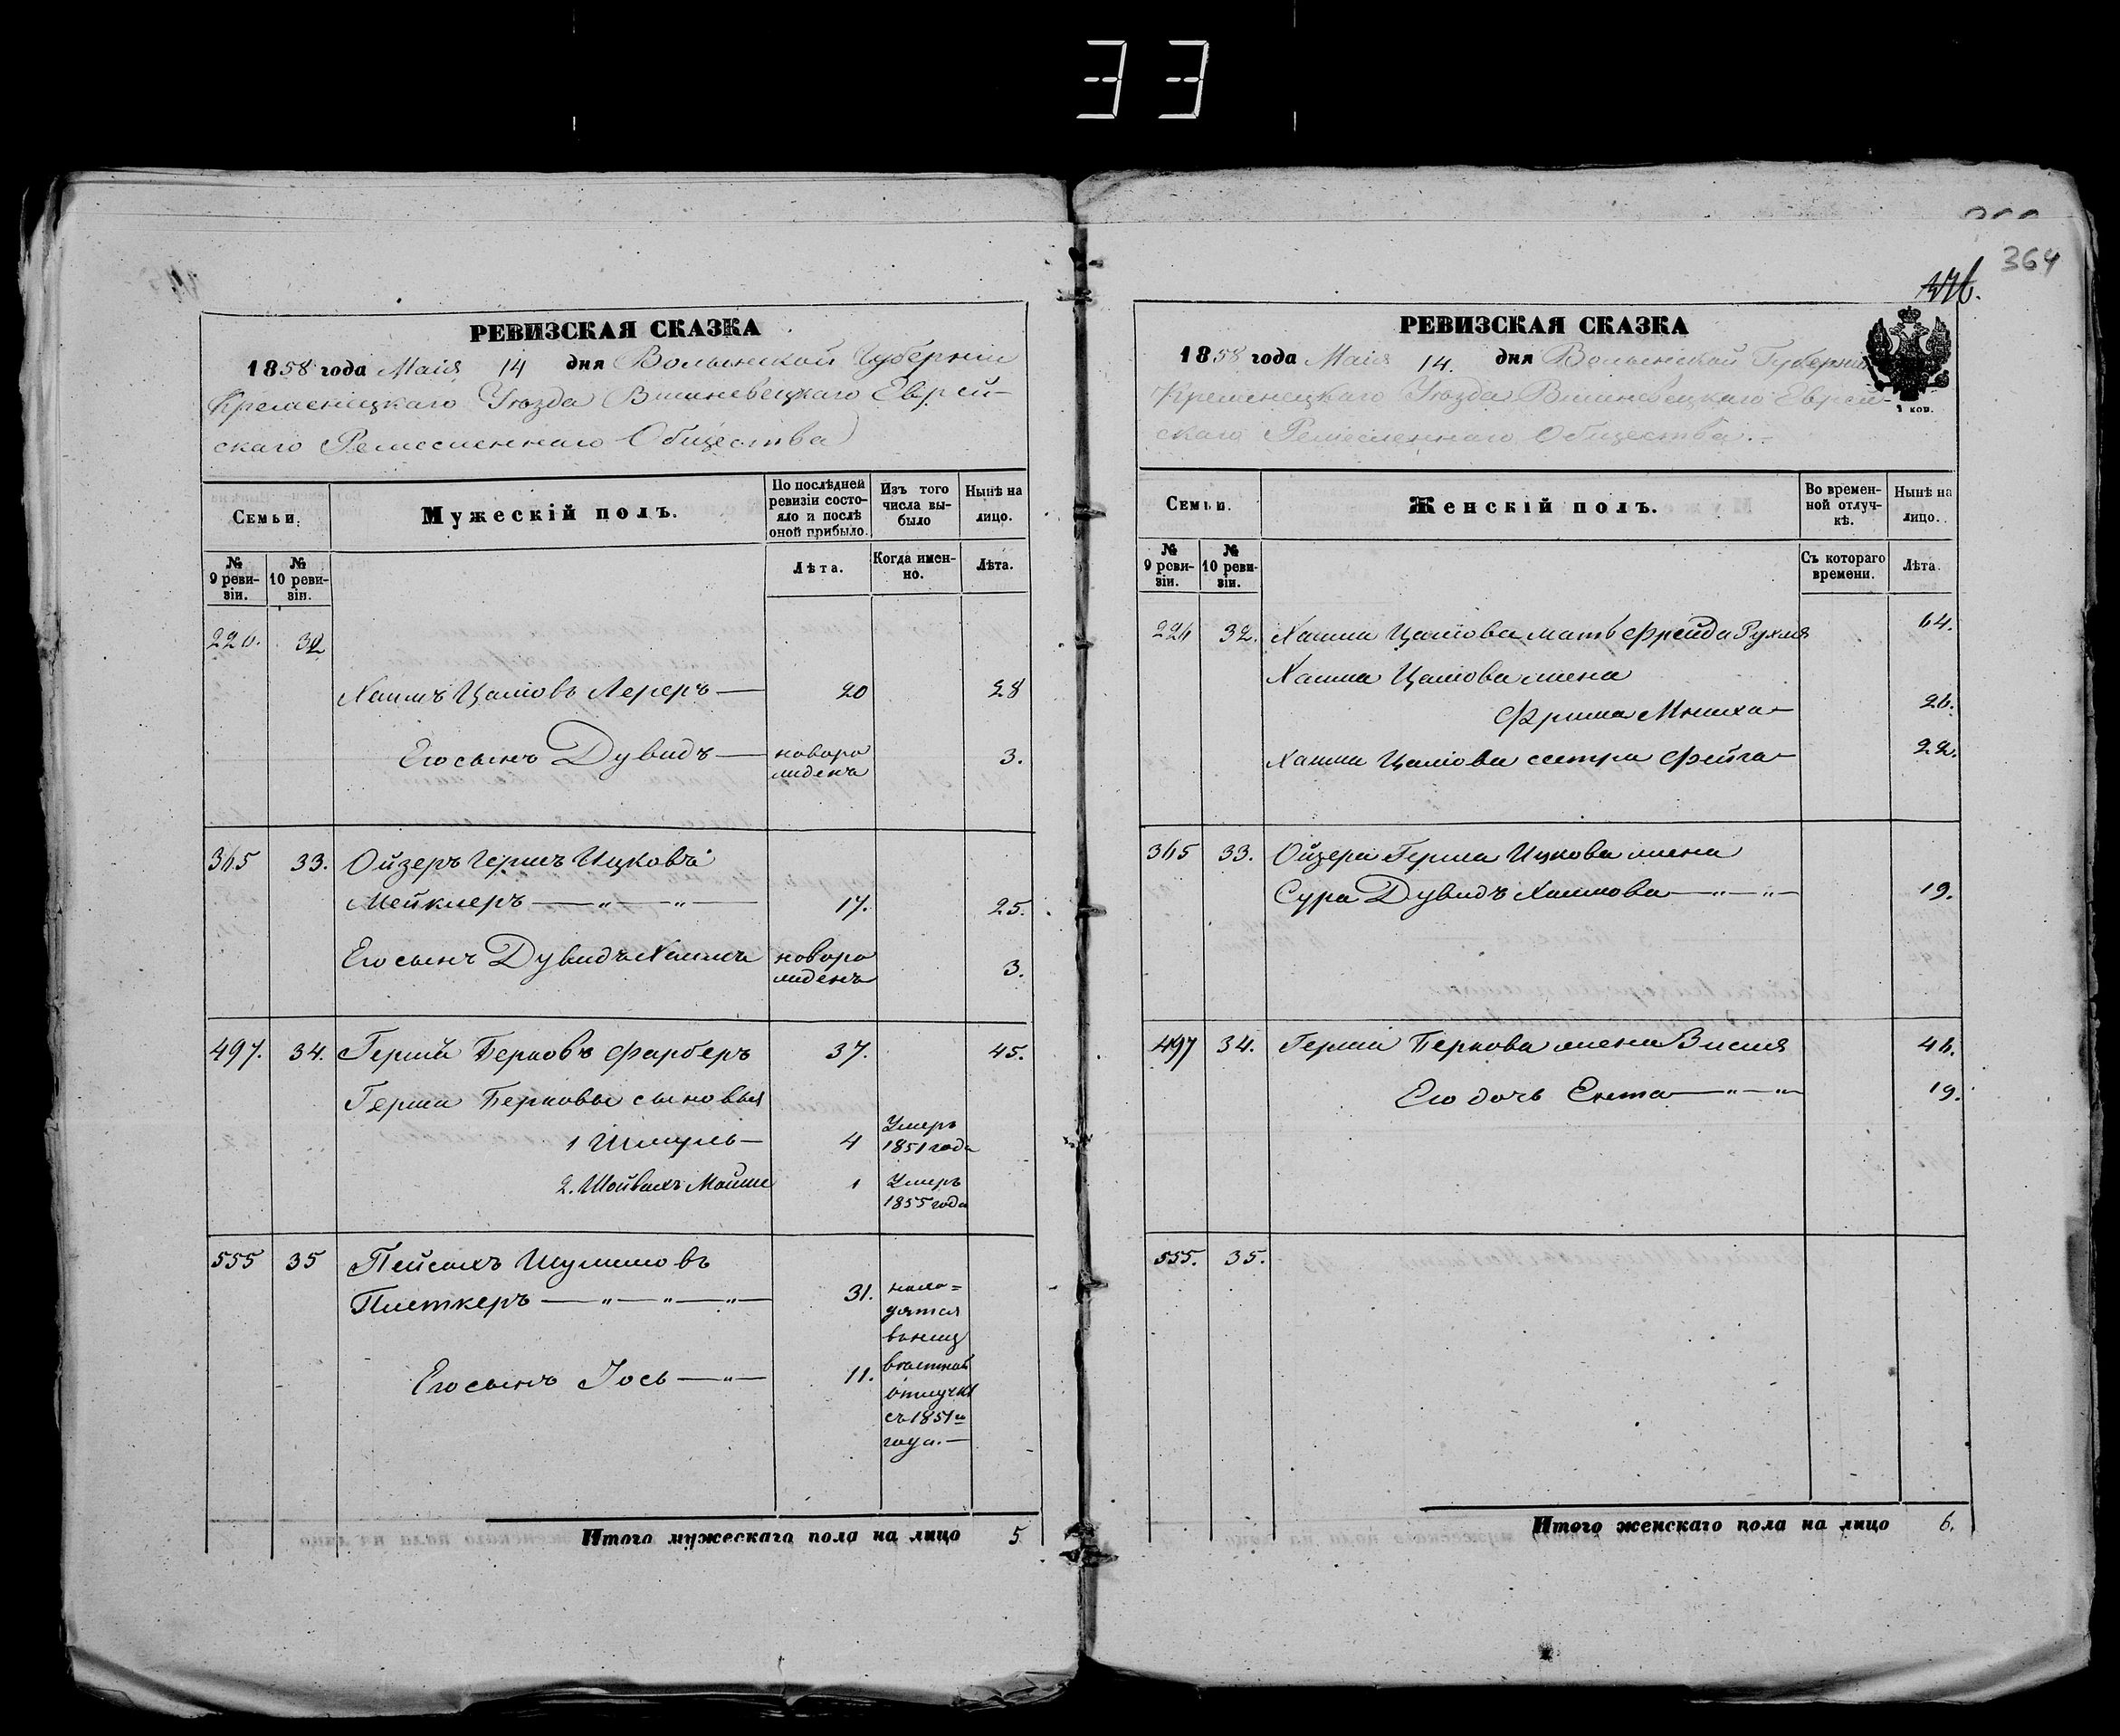 33
364
РЕВИЗСКАЯ СКАЗКА
1858 года Маія 14 дня Волынской Губерніи
Кременецкаго Уѣзда Вишневецкаго Еврей-
скаго Ремесленнаго Общества
Семьи.
Мужескій полъ.
По послѣдней
ревизіи состо-
яло и послѣ
оной прибыло.
Изъ того
числа вы-
было
Нынѣ на
лицо.
№
9 реви-
зіи.
№
10 реви-
зіи.
Лѣта.
Когда имен-
но.
Лѣта.
226. 32
Хаимъ Цаліовъ Лереръ 20 28
Его сынъ Дувидъ новоро 3.
жденъ
365 33. Ойзеръ Гершъ Ицковъ
Мейклеръ 17. 25.
Его сынъ Дувидъ Хаимъ новоро 3.
жденъ
497. 34. Гершъ Берковъ Фарберъ 37. 45.
Герша Берковы сыновья
1 Шмуль 4 Умеръ
1851 года
2. Мошко 1 Умеръ
1855 года
555 35 Пейсахъ Шулимовъ
31. нахо=
дятся
Его сынъ Іось 11.
отлучкѣ
съ 1851го
года.
Итого мужескаго пола на лицо 5
РЕВИЗСКАЯ СКАЗКА
1858 года Маія 14. дня Волынской Губерніи
Кременецкаго Уѣзда Вишневецкаго Еврей-
скаго Ремесленнаго Общества.
Семьи.
Женскій полъ.
Во времен-
ной отлуч-
кѣ.
Нынѣ на
лицо.
№
9 реви-
зіи.
№
10 реви-
зіи.
Съ котораго
времени.
Лѣта.
226 32. Хаима Цаліова мать Фрейда Рухля 64.
Хаима Цаліова жена
26.
Хаима Цаліова сестра Фейга 22.
365 33. Ойзера Герша Ицкова жена
Сура Дувидъ Хаимова 19.
497 34. Герша Беркова жена Зисля 46.
Его дочь Ента 19.
555. 35.
Итого женскаго пола на лицо 6.